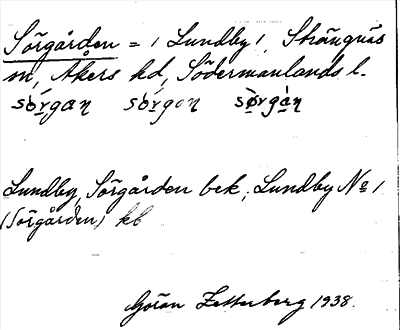 Sörgården = 1 Lundby 1, Strängnäs
m, Åkers hd, Södermanlands l.
sörgan sörgon sörgàn
Lundby, Sörgården bek, Lundby No 1
(Sörgården) kb
Göran Zetterberg 1938.